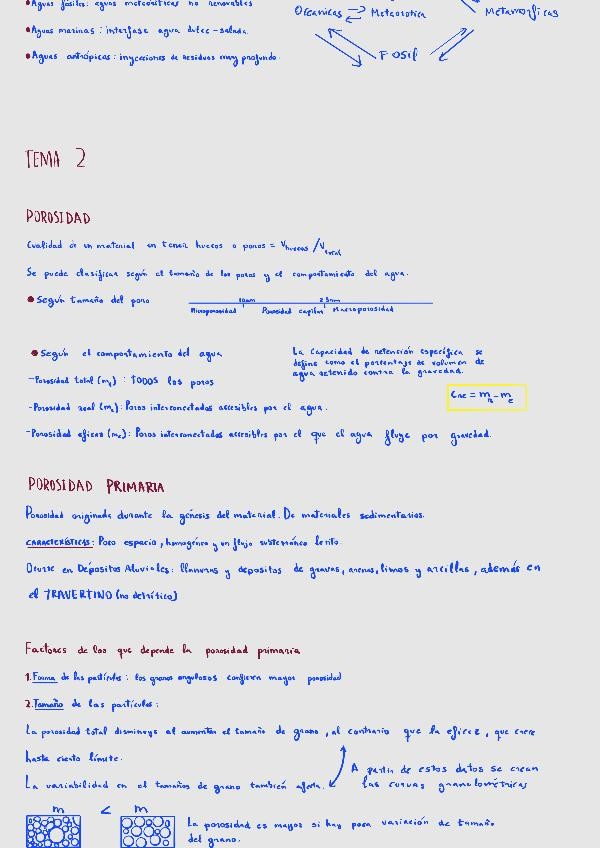 •Aguas fósiles: aguas meteoóriticas no renovables
•Aguas marinas: interfase agua dulce - salada.
•Aguas antrópicas: inyecciones de residuos muy profundo.
Oceánicas Meteorotica Metamorficas
FOSIL
TEMA 2
POROSIDAD
Cualidad de un material en tener huecos o poros = Vhuecos /Vtotal
Se puede clasificar según el tamaño de los poros y el comportamiento del agua.
• Según tamaño del poro
10µm 2.5mm
Microporosidad Porosidad capilar Macroporosidad
• Según el comportamiento del agua
-Porosidad total (mT) : TODOS los poros
La capacidad de retención específica se
define como el porcentaje de volumen de
agua retenido contra la gravedad.
Cre = mR - me
-Porosidad real (mR): Poros interconectados accesibles por el agua.
-Porosidad eficaz (me): Poros interconectados accesibles por el que el agua fluye por gravedad.
POROSIDAD PRIMARIA
Porosidad originada durante la génesis del material. De materiales sedimentarios.
CARACTERÍSTICAS: Poco espacio, homogéneo y un flujo subterráneo lento.
Ocurre en Depósitos Aluviales: llanuras y depositos de gravas, arenas, limos y arcillas, además en
el TRAVERTINO (no detrítico)
Factores de los que depende la porosidad primaria
1.Forma de las partículas: los granos angulosos confieren mayor porosidad
2.Tamaño de las partículas:
La porosidad total disminuye al aumentar el tamaño de grano, al contrario que la eficaz, que crece
hasta cierto límite.
La variabilidad en el tamaños de grano también afecta.
A partir de estos datos se crean
las curvas granulométricas
m < m
La porosidad es mayor si hay poca variación de tamaño
del grano.